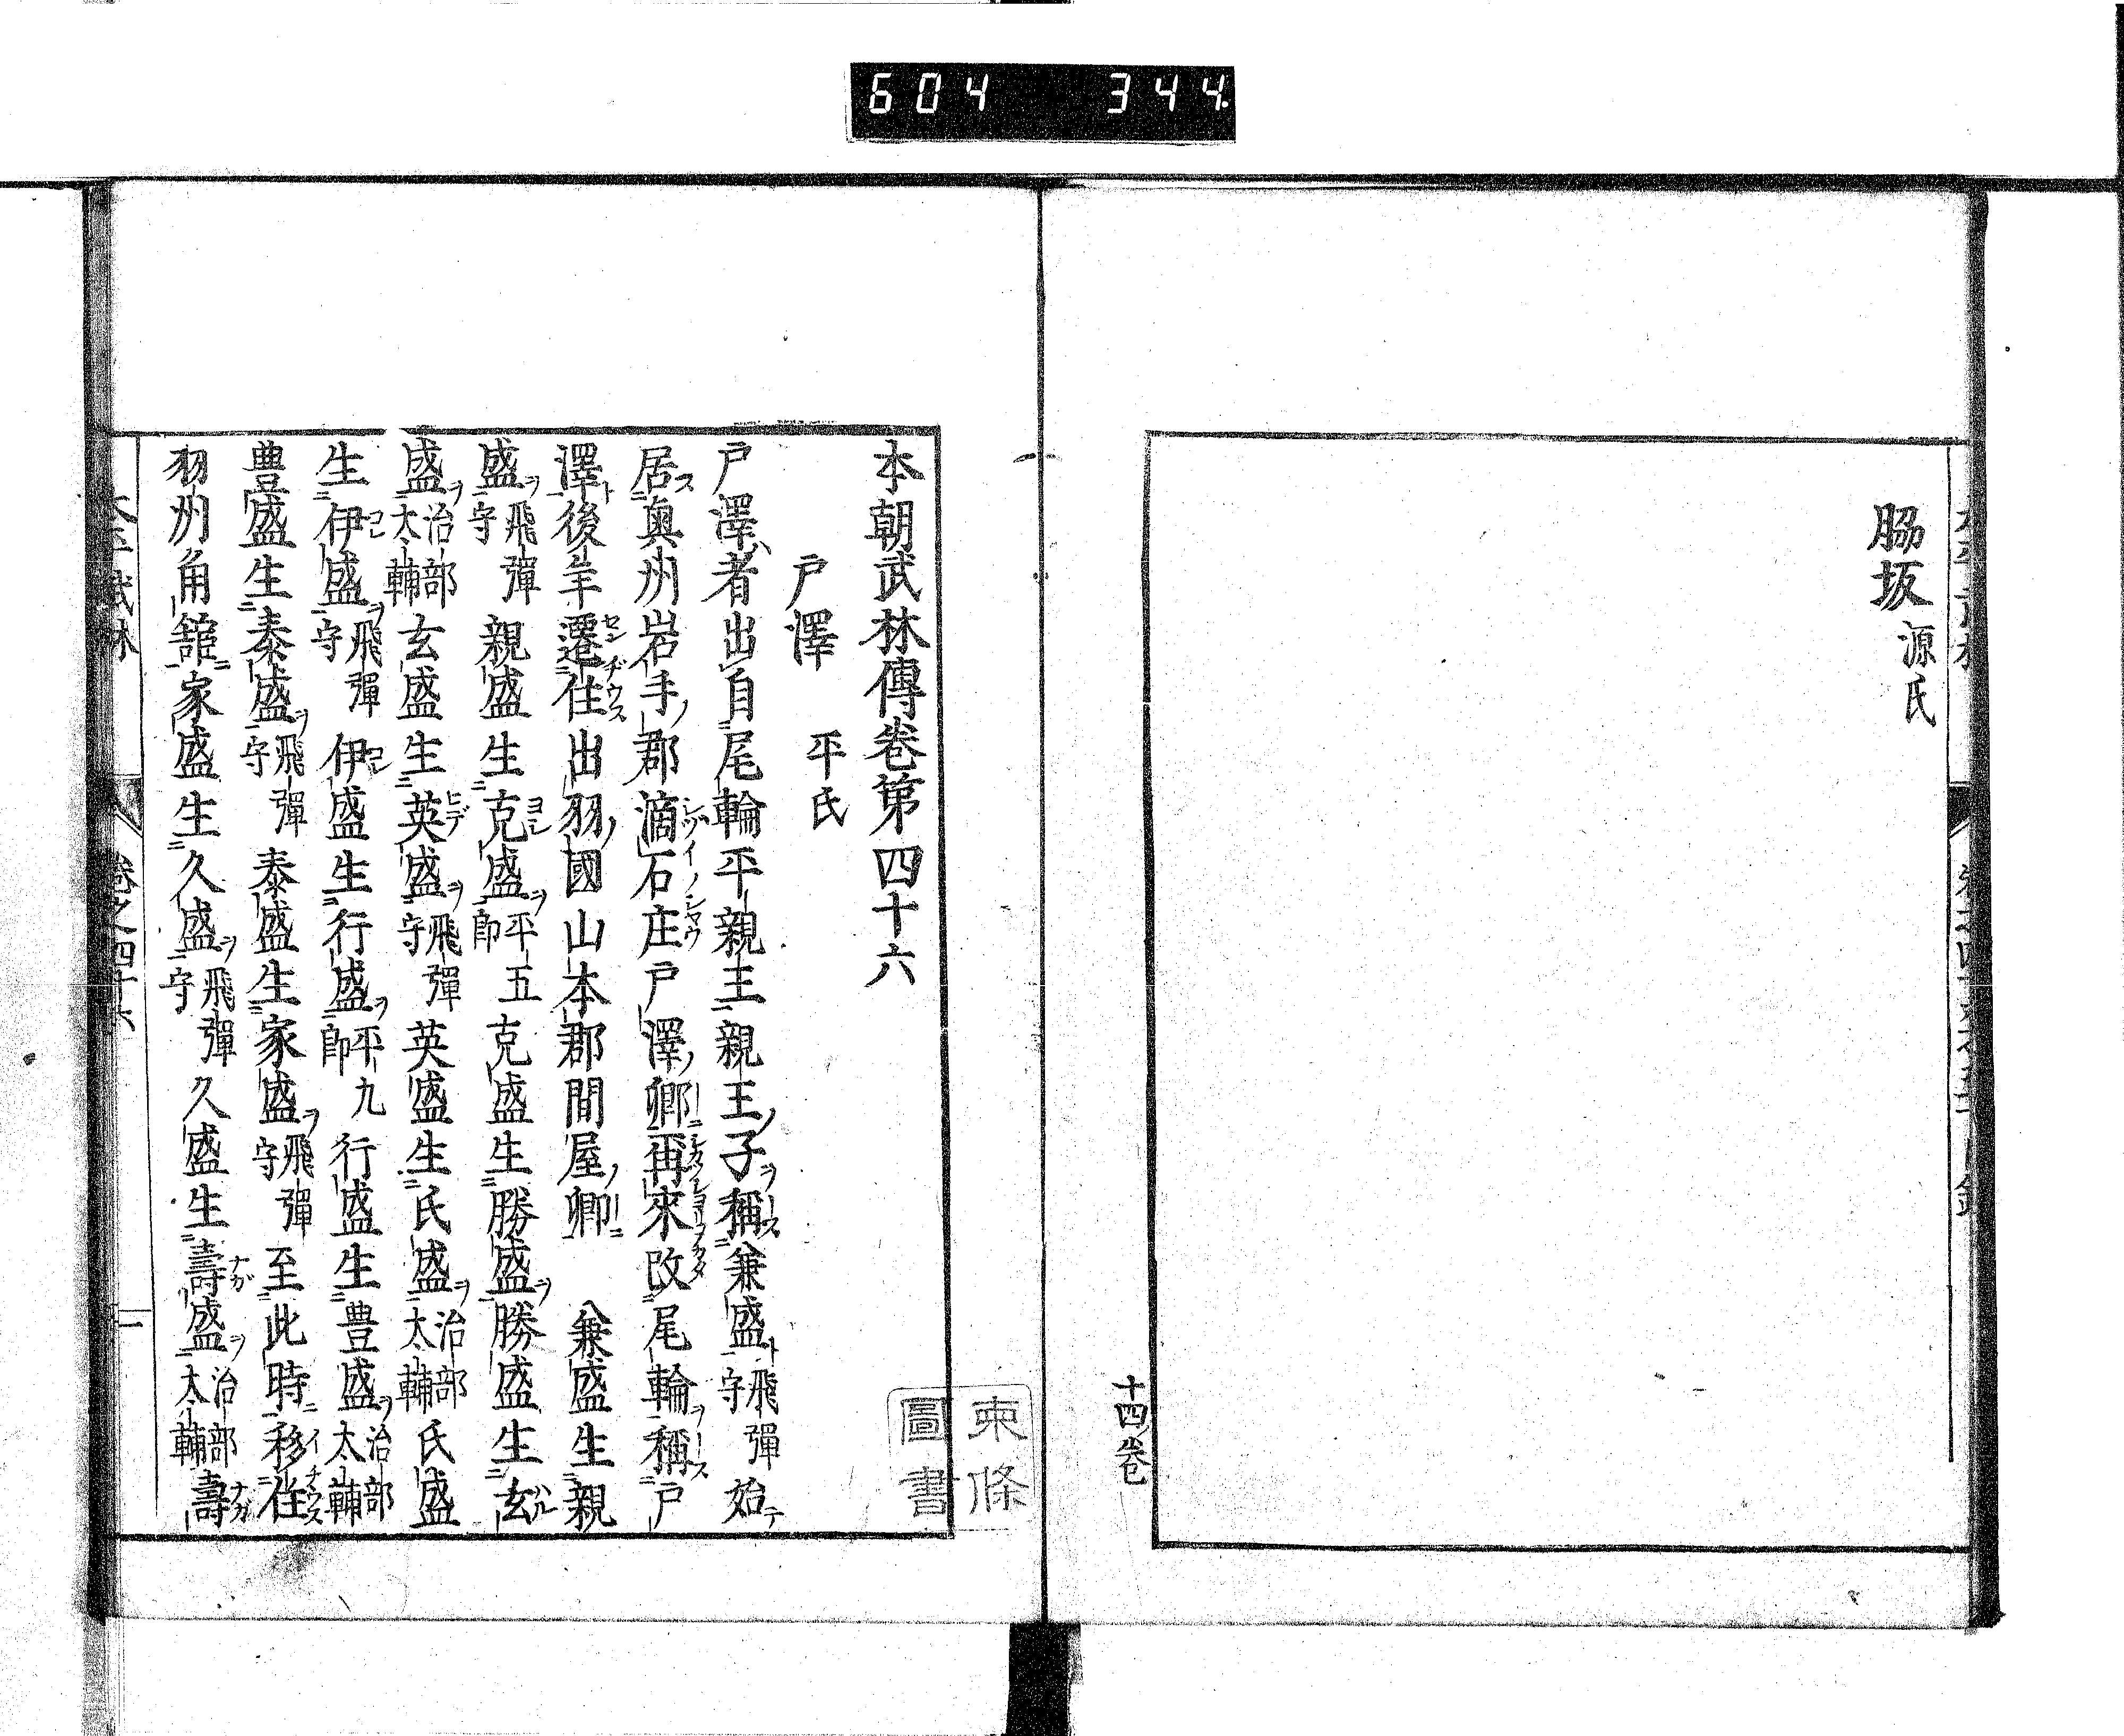 604 344
脇坂 源氏
十四卷
東條圖書
本朝武林傳卷第四十六
戸澤 平氏
戸澤者出自尾輪平親王親王子稱兼盛飛彈守始
居奥州岩手郡滴石庄戸澤鄕再來改尾輪稱戸
澤後年遷住出羽國山本郡間屋鄕 兼盛生親
盛飛彈守親盛生克盛平五郎克盛生勝盛勝盛生玄
盛治部太輔玄盛生英盛飛彈守英盛生氏盛治部太輔氏盛
生伊盛飛彈守伊盛生行盛平九郎行盛生豊盛治部太輔
豊盛生泰盛飛彈守泰盛生家盛飛彈守至此時移住
羽州角舘家盛生久盛飛彈守久盛生壽盛治部太輔壽
卷之四十六
一